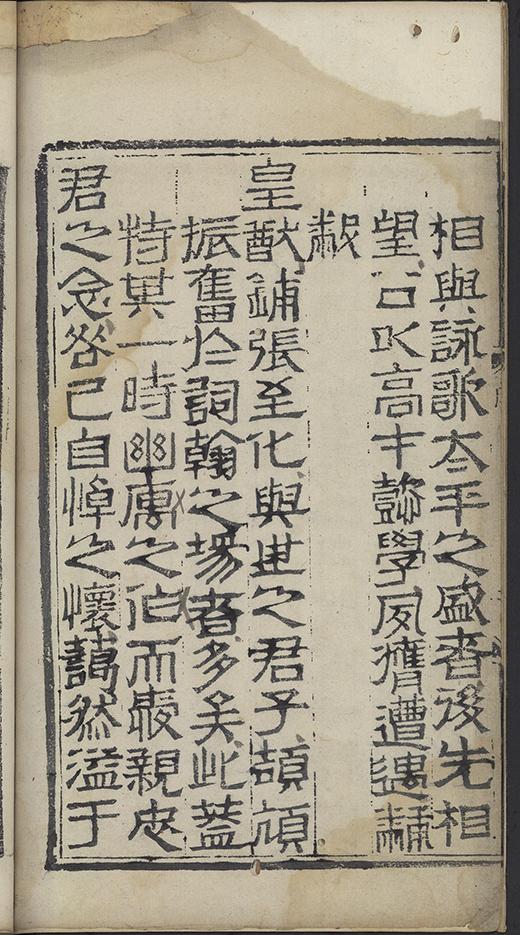 相與詠歌太平之盛者後先相
望公以高才懿學夙膺遭遇黼
黻
皇猷鋪張至化與世之君子頡頏
振奮於詞翰之場者多矣此蓋
特其一時幽寓之作而愛親忠
君之念咎己自悼之懷藹然溢于